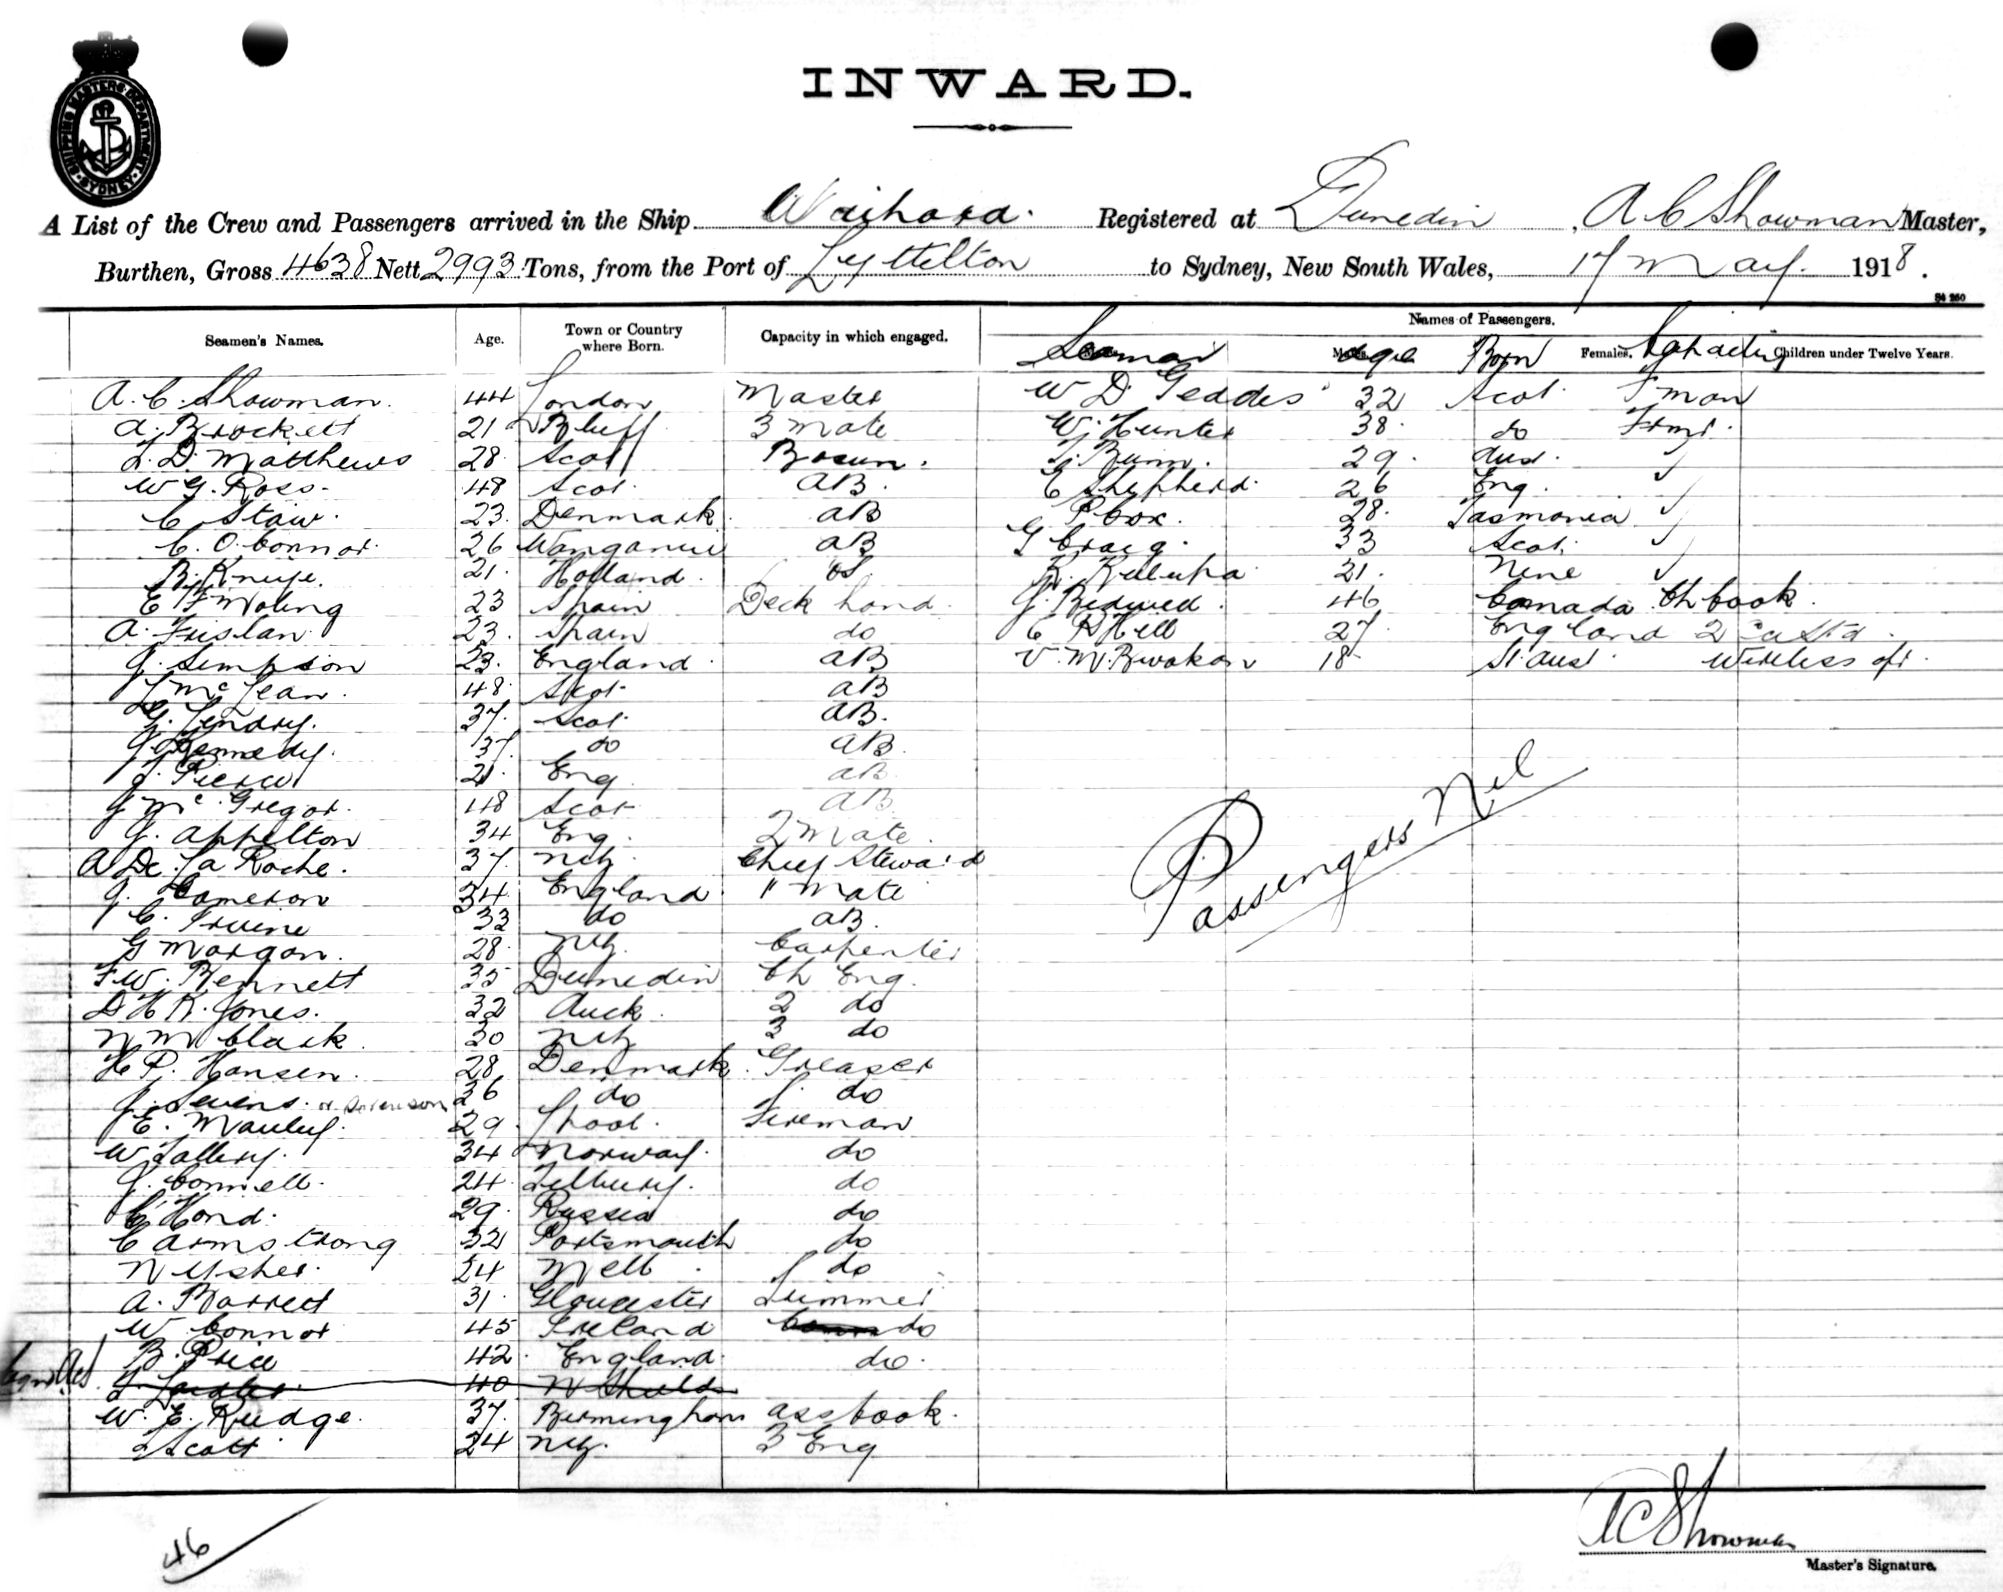 SHIPPING MASTERS DEPARTMENT
SYDNEY
INWARD.
A List of the Crew and Passengers arrived in the Ship Waihora. Registered at Dunedin, A C Showman Master,
Burthen, Gross 4638 Nett 2993 Tons, from the Port of Lyttelton to Sydney, New South Wales, 17 May. 1918.
Seamen's Names. Age. Town or Country where Born. Capacity in which engaged. Names of Passengers.
Seaman age Born Females. Capacity Children under Twelve Years.
A. C. Showman. 44 London Master W D Geddes 32 Scot. Fman
A. Brockett 21 Bluff 3 Mate W. Hunter 38. do Frmn.
D. Matthews 28. Scot Bosun. 29. Aus. ✓
W G. Ross. 48 Scot. AB. C Shepherd. 26 Eng. ✓
C Staw. 23. Denmark. AB P Cox. 28. Tasmania ✓
C. O. Connor. 26 Wanganui AB G Craig. 33 Scot. ✓
B. Knije. 21. Holland. OS 21. ✓
23 Spain Deck hand. 46 Canada. Ch Cook.
A. Frislan. 23. Spain do C R Hill 27 England 2 Cook
J. Simpson 23. England. AB 18 St. Aust. Wireless opr.
J Mc Lean. 48. Scot. AB
G. Lendry. 37. Scot. AB.
J Kennedy. 37. do AB.
J. Pierce 21. Eng. AB.
J Mc Gregor. 48 Scot. AB.
J. Appelton 34 Eng. 2 Mate.
A De. La Roche. 37. NZ. Chief Steward
J. Cameron 34 England. " Mate
C. Irvine 33 do AB.
G Morgan. 28. NZ. Carpenter
F.W. Bennett 35 Dunedin Ch Eng.
D H R. Jones. 32 Auck. 2 do
N M Clark. 30 NZ 3 do
H P. Hansen. 28 Denmark. Greaser
J. Sevens. or Sorenson 26 do do
E. Mauley. 29. Fireman
W Lallery. 34 Norway. do
J. Connell. 24. Tilbury. do
C Hond. 29. Russia do
C Armstrong 32 Portsmouth do
N Usher. 24 Melb. do
A. Barrett 31. Gloucester Trimmer
W Connor 45 Ireland do
B. Price 42. England. do.
40 N Shields
W. E. Rudge. 37. Birmingham ass Cook.
Scott 24 NZ. 3 Eng
Passengers Nil
46
A C Showman
Master's Signature.